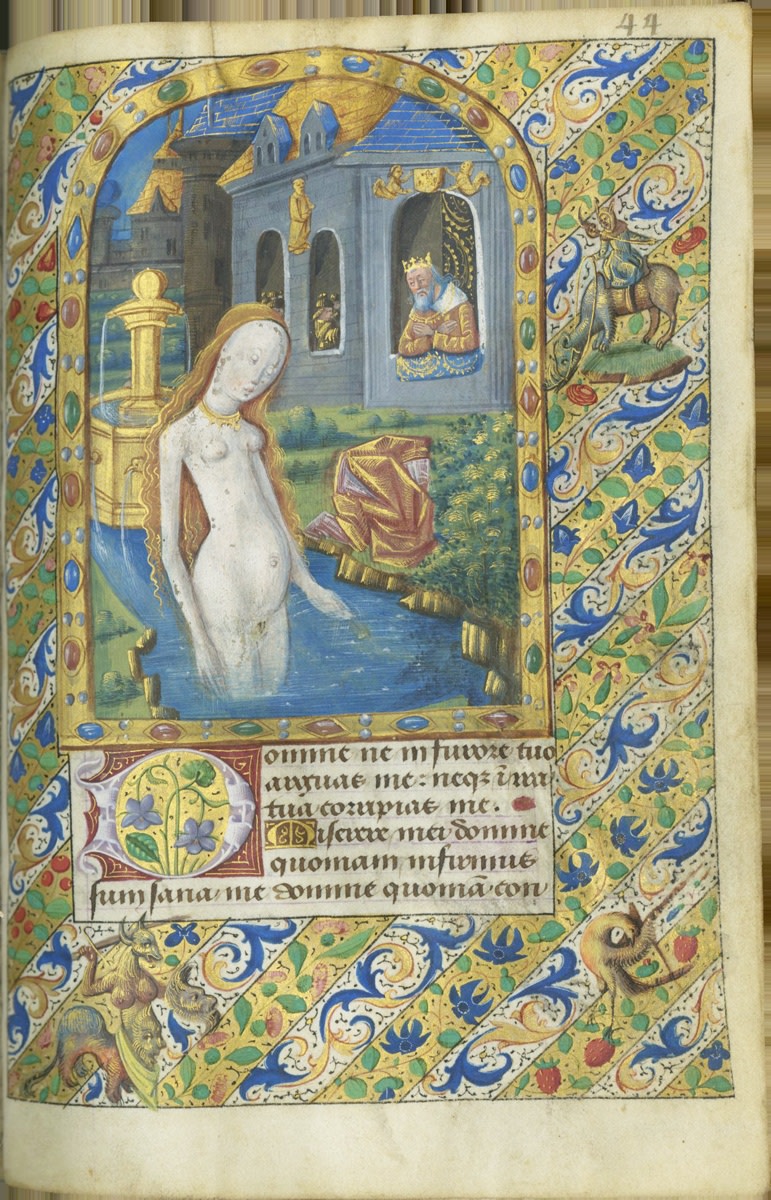 44
Domine ne in furore tuo
arguas me: neqʒ ī ira
tua corripias me.
Miserere mei domine
quoniam infirmus
sum sana me domine quoniā con